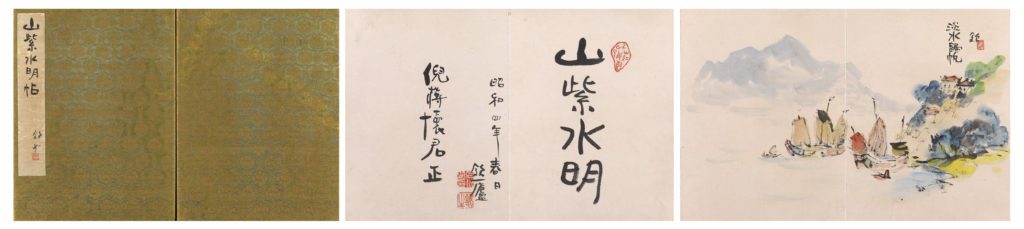 山紫水明帖
山紫水明
昭和四年春日
欽一廬
倪蔣懷君正
淡水歸帆
欽